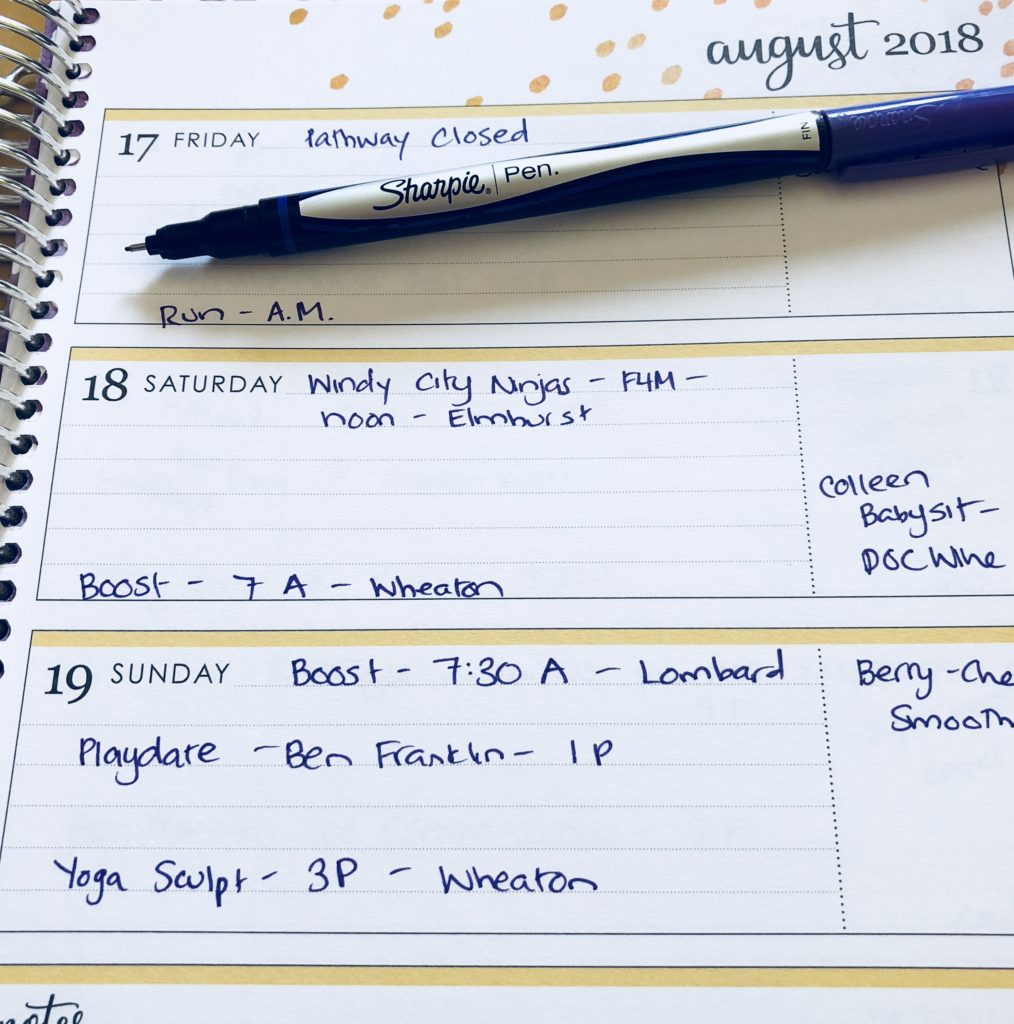 august 2018
17 FRIDAY Pathway Closed
Sharpie® Pen.
FIN
Run - A.M.
18 SATURDAY Windy City Ninjas - F4M -
noon - Elmhurst
Colleen
Babysit -
DOC Wine
Boost - 7 A - Wheaton
19 SUNDAY Boost - 7:30 A - Lombard
Berry - Che
Smooth
Playdate - Ben Franklin - 1 P
Yoga Sculpt - 3P - Wheaton
notes